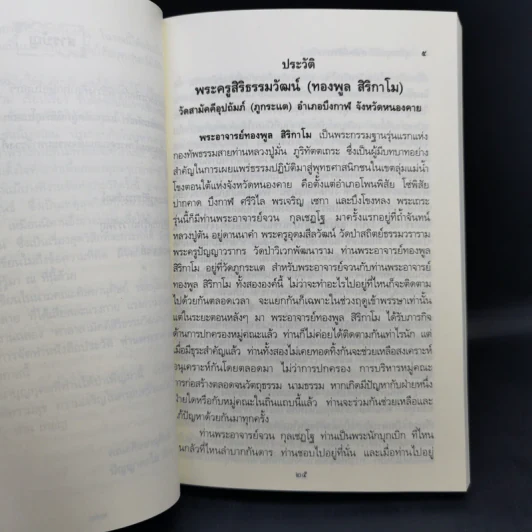 ๕
ประวัติ
พระครูสิริธรรมวัฒน์ (ทองพูล สิริกาโม)
วัดสามัคคีอุปถัมภ์ (ภูกระแต) อำเภอบึงกาฬ จังหวัดหนองคาย
พระอาจารย์ทองพูล สิริกาโม เป็นพระกรรมฐานรุ่นแรกแห่ง
กองทัพธรรมสายท่านหลวงปู่มั่น ภูริทัตตเถระ ซึ่งเป็นผู้มีบทบาทอย่าง
สำคัญในการเผยแพร่ธรรมปฏิบัติมาสู่พุทธศาสนิกชนในเขตลุ่มแม่น้ำ
โขงตอนใต้แห่งจังหวัดหนองคาย คือตั้งแต่อำเภอโพนพิสัย โซ่พิสัย
ปากคาด บึงกาฬ ศรีวิไล พรเจริญ เซกา และบึงโขงหลง พระเถระ
รุ่นนี้ก็มีท่านพระอาจารย์จวน กุลเชฏโฐ มาครั้งแรกอยู่ที่ถ้ำจันทน์
หลวงปู่ตัน อยู่ดานนาคำ พระครูอุดมสีลวัฒน์ วัดป่าสถิตย์ธรรมวราราม
พระครูปัญญาวรากร วัดป่าวิเวกพัฒนาราม ท่านพระอาจารย์ทองพูล
สิริกาโม อยู่ที่วัดภูกระแต สำหรับพระอาจารย์จวนกับท่านพระอาจารย์
ทองพูล สิริกาโม ทั้งสององค์นี้ ไม่ว่าจะทำอะไรไปอยู่ที่ไหนก็จะติดตาม
ไปด้วยกันตลอดเวลา จะแยกกันก็เฉพาะในช่วงฤดูเข้าพรรษาเท่านั้น
แต่ในระยะตอนหลังๆ มา พระอาจารย์ทองพูล สิริกาโม ได้รับภารกิจ
ด้านการปกครองหมู่คณะแล้ว ท่านก็ไม่ค่อยได้ติดตามกันเท่าไรนัก แต่
เมื่อมีธุระสำคัญแล้ว ท่านทั้งสองไม่เคยทอดทิ้งกันจะช่วยเหลือสงเคราะห์
อนุเคราะห์กันโดยตลอดมา ไม่ว่าการปกครอง การบริหารหมู่คณะ
การก่อสร้างตลอดจนวัตถุธรรม นามธรรม หากเกิดมีปัญหากับฝ่ายหนึ่ง
ฝ่ายใดหรือกับหมู่คณะในถิ่นแถบนี้แล้ว ท่านจะร่วมกันช่วยเหลือและ
แก้ปัญหาด้วยกันมาทุกครั้ง
ท่านพระอาจารย์จวน กุลเชฏโฐ ท่านเป็นพระนักบุกเบิก ที่ไหน
คนกลัวที่ไหนลำบากกันดาร ท่านชอบไปอยู่ที่นั่น และเมื่อท่านไปอยู่
๒๕